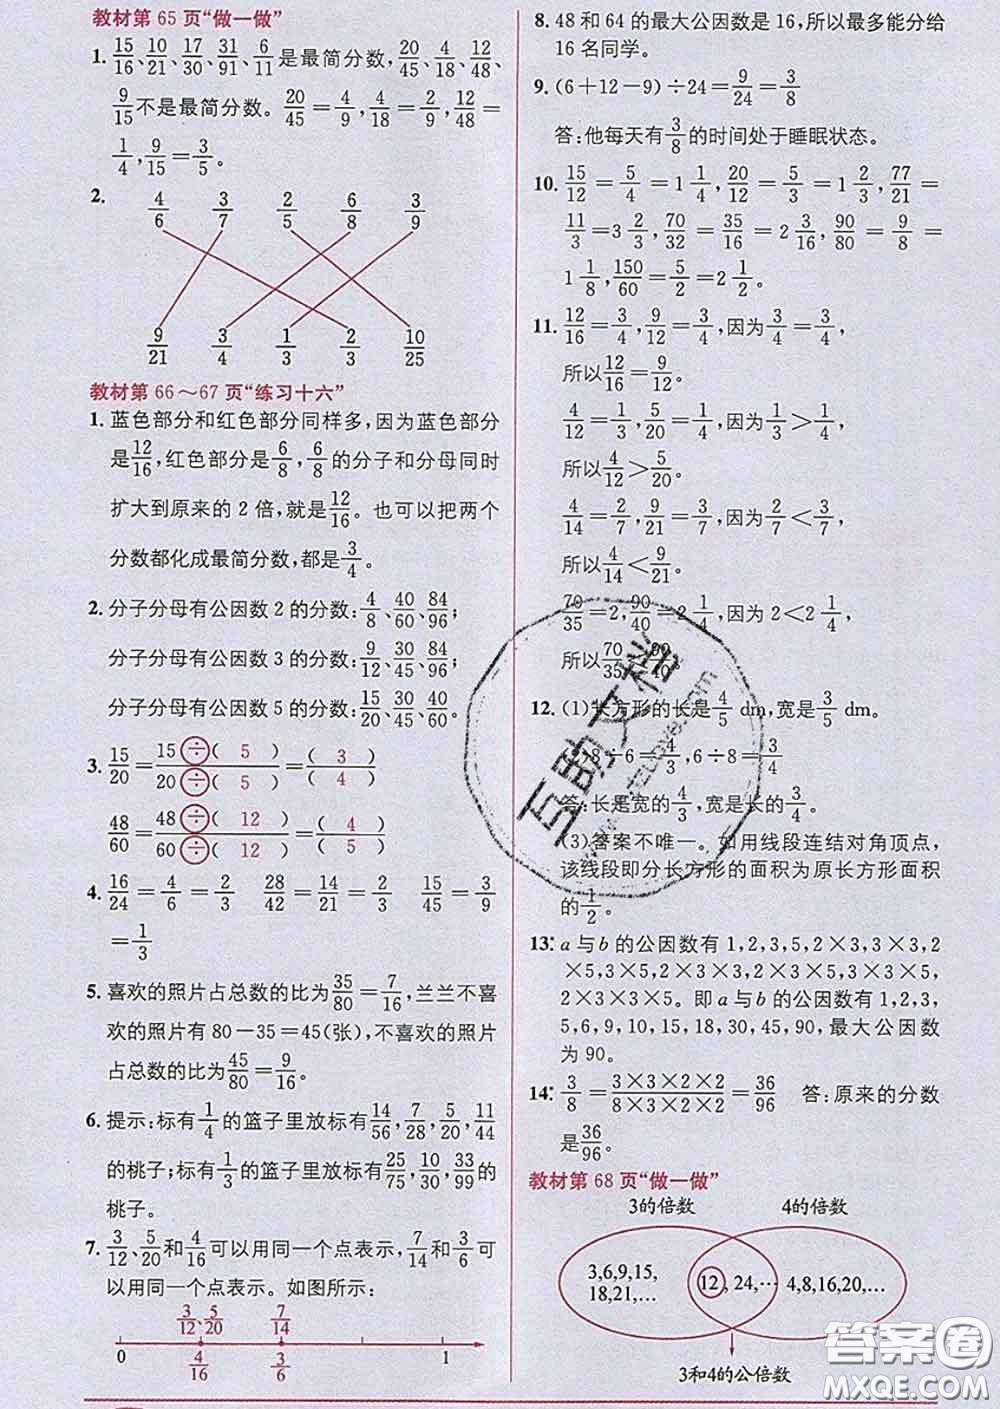 教材第 65 页“做一做”
1. 15/16、10/21、17/30、31/91、6/11是最简分数,20/45、4/18、12/48、
9/15不是最简分数。20/45=4/9,4/18=2/9,12/48=
1/4,9/15=3/5。
2. 4/6 3/7 2/5 6/8 3/9
9/21 3/4 1/3 2/3 10/25
教材第 66～67 页“练习十六”
1. 蓝色部分和红色部分同样多,因为蓝色部分
是12/16,红色部分是6/8,6/8的分子和分母同时
扩大到原来的 2 倍,就是12/16。也可以把两个
分数都化成最简分数,都是3/4。
2. 分子分母有公因数 2 的分数:4/8、40/60、84/96;
分子分母有公因数 3 的分数:9/12、30/45、84/96;
分子分母有公因数 5 的分数:15/20、30/45、40/60。
3. 15/20=15÷( 5 )/20÷( 5 )=( 3 )/( 4 )
48/60=48÷( 12 )/60÷( 12 )=( 4 )/( 5 )
4. 16/24=4/6=2/3 28/42=14/21=2/3 15/45=3/9
=1/3
5. 喜欢的照片占总数的比为35/80=7/16,兰兰不喜
欢的照片有 80-35=45(张),不喜欢的照片
占总数的比为45/80=9/16。
6. 提示:标有1/4的篮子里放标有14/56,7/28,5/20,11/44
的桃子;标有1/3的篮子里放标有25/75,10/30,33/99的
桃子。
7. 3/12、5/20和4/16可以用同一个点表示,7/14和3/6可
以用同一个点表示。如图所示:
3/12、5/20 7/14
0 4/16 3/6 1
8. 48 和 64 的最大公因数是 16,所以最多能分给
16 名同学。
9. (6+12-9)÷24=9/24=3/8
答:他每天有3/8的时间处于睡眠状态。
10. 15/12=5/4=1 1/4,20/12=5/3=1 2/3,77/21=
11/3=3 2/3,70/32=35/16=2 3/16,90/80=9/8=
1 1/8,150/60=5/2=2 1/2。
11. 12/16=3/4,9/12=3/4,因为3/4=3/4,
所以12/16=9/12。
4/12=1/3,5/20=1/4,因为1/3>1/4,
所以4/12>5/20。
4/14=2/7,9/21=3/7,因为2/7<3/7,
所以4/14<9/21。
70/35=2,90/40=2 1/4,因为 2<2 1/4,
所以70/35<90/40。
12. (1)长方形的长是4/5 dm,宽是3/5 dm。
8÷6=4/3,6÷8=3/4
答:长是宽的4/3,宽是长的3/4。
(3)答案不唯一。如用线段连结对角顶点,
该线段即分长方形的面积为原长方形面积
的1/2。
13. a与b的公因数有 1,2,3,5,2×3,3×3,2
×5,3×5,2×3×3,2×3×5,3×3×5,
2×3×3×5。即a与b的公因数有 1,2,3,
5,6,9,10,15,18,30,45,90,最大公因数
为 90。
14. 3/8=3×3×2×2/8×3×2×2=36/96 答:原来的分数
是36/96。
教材第 68 页“做一做”
3的倍数 4的倍数
3,6,9,15,
18,21,… 12,24,… 4,8,16,20,…
3和4的公倍数
互助文档
答案圈
MXQE.COM